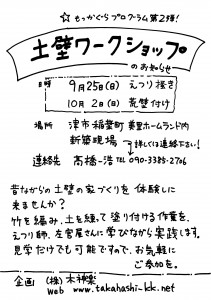 ☆もっかぐらプログラム第2弾!
土壁ワークショップ
のお知らせ
日時 9月25日(日) えつり掻き
10月2日(日) 荒壁付け
場所 津市稲葉町 美里ホームランド内
新築現場 詳しくは連絡下さい!
連絡先 高橋一浩 TEL 090-3385-2706
昔ながらの土壁の家づくりを体験しに
来ませんか?
竹を編み、土を練って塗り付ける作業を、
えつり師、左官屋さんに学びながら実践します。
見学だけでも可能ですので、お気軽に
ご参加を。
企画 (株)木神楽
web www.takahashi-kk.net